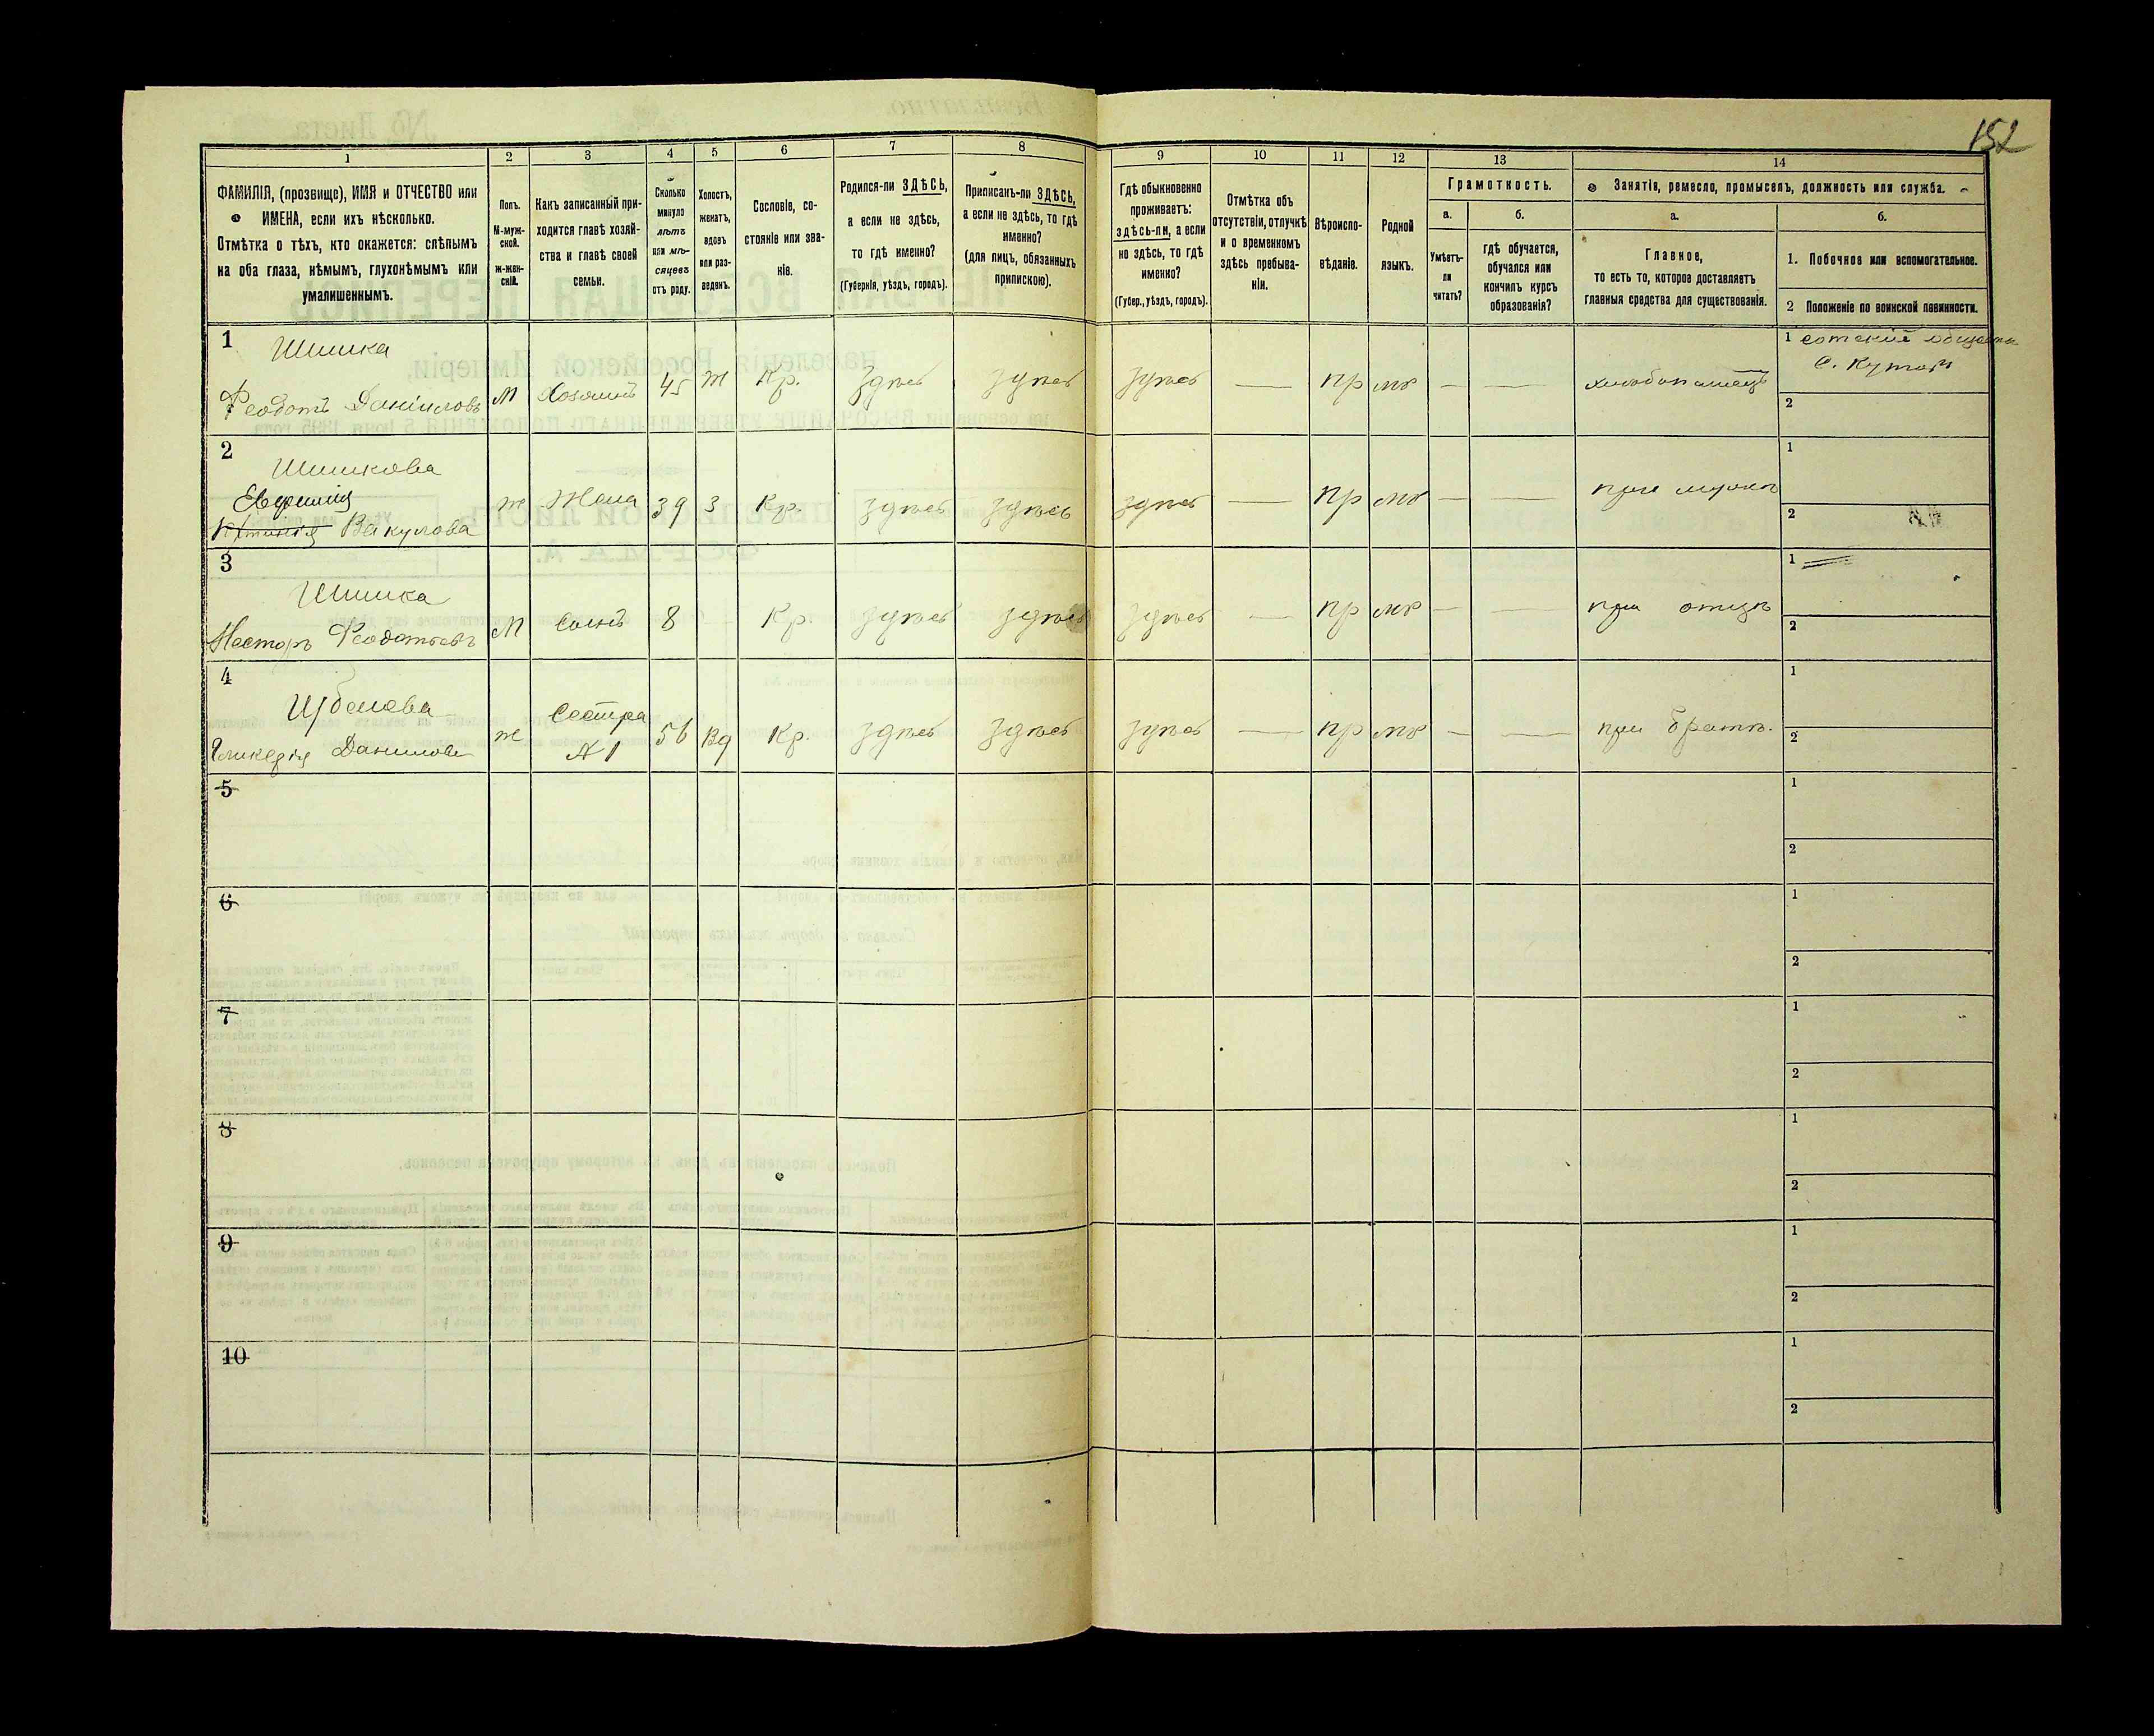 152
1 2 3 4 5 6 7 8 9 10 11 12 13 14
ФАМИЛІЯ, (прозвище), ИМЯ и ОТЧЕСТВО или
ИМЕНА, если ихъ нѣсколько.
Отмѣтка о тѣхъ, кто окажется: слѣпымъ
на оба глаза, нѣмымъ, глухонѣмымъ или
умалишеннымъ.
Полъ.
М-муж-
ской.
ж-жен-
скій.
Какъ записанный при-
ходится главѣ хозяй-
ства и главѣ своей
семьи.
Сколько
минуло
лѣтъ
или мѣ-
сяцевъ
отъ роду.
Холостъ,
женатъ,
вдовъ
или раз-
веденъ.
Сословіе, со-
стояніе или зва-
ніе.
Родился-ли ЗДѢСЬ,
а если не здѣсь,
то гдѣ именно?
(Губернія, уѣздъ, городъ).
Приписанъ-ли ЗДѢСЬ,
а если не здѣсь, то гдѣ
именно?
(для лицъ, обязанныхъ
припискою).
Гдѣ обыкновенно
проживаетъ:
здѣсь-ли, а если
не здѣсь, то гдѣ
именно?
(Губер., уѣздъ, городъ).
Отмѣтка объ
отсутствіи, отлучкѣ
и о временномъ
здѣсь пребыва-
ніи.
Вѣроиспо-
вѣданіе.
Родной
языкъ.
Грамотность.
а.
Умѣетъ-
ли
читать?
б.
гдѣ обучается,
обучался или
кончилъ курсъ
образованія?
Занятіе, ремесло, промыселъ, должность или служба.
а.
Главное,
то есть то, которое доставляетъ
главныя средства для существованія.
б.
1. Побочное или вспомогательное.
2 Положеніе по воинской повинности.
1 Шишка
Феодотъ Даниловъ М Хозяинъ 45 ж Кр. Здѣсь Здѣсь Здѣсь — пр мр — — хлѣбопашецъ
1 сотскій
с.
2
2 Шишкова
Евфимія
Вакулова ж Жена 39 З Кр. Здѣсь Здѣсь Здѣсь — пр мр — — при мужѣ
1
2
3 Шишка
Несторъ Феодотьевъ М Сынъ 8 Кр. Здѣсь Здѣсь Здѣсь — пр мр — — при отцѣ
1
2
4
Гликерія Данилова ж Сестра
№ 1 56 Вд Кр. Здѣсь Здѣсь Здѣсь — пр мр — — при братѣ.
1
2
5
1
2
6
1
2
7
1
2
8
1
2
9
1
2
10
1
2